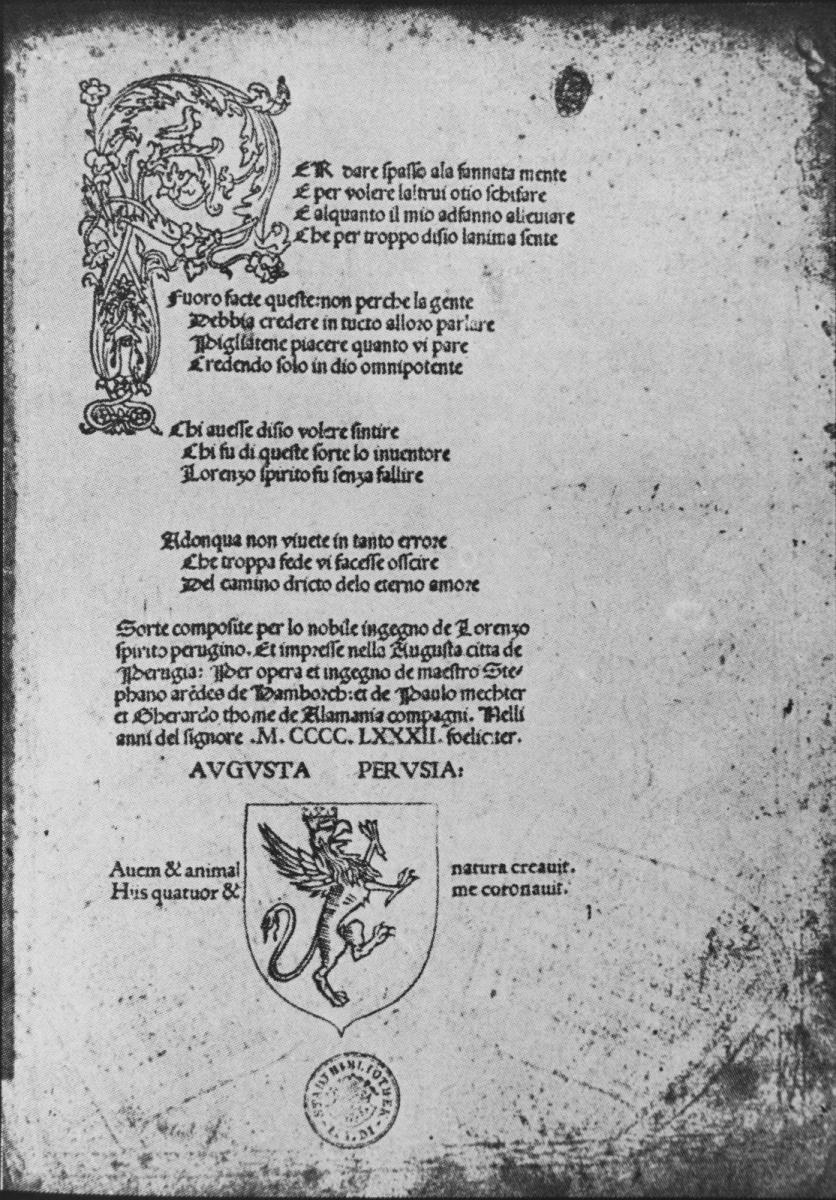 PER dare spasso ala fannata mente
E per volere laltrui otio schifare
E alquanto il mio adfanno alieuiare
Che per troppo disio lanima sente
Fuoro facte queste: non perche la gente
Debbia credere in tucto alloro parlare
Pigliatene piacere quanto vi pare
Credendo solo in dio omnipotente
Chi auesse disio volere sintire
Chi fu di queste sorte lo inuentore
Lorenzo spirito fu senza fallire
Adonqua non viuete in tanto errore
Che troppa fede vi facesse oscire
Del camino dricto delo eterno amore
Sorte composite per lo nobile ingegno de Lorenzo
spirito perugino. Et impresse nella Augusta citta de
Perugia: Per opera et ingegno de maestro Ste/
phano arēdes de Hamborch: et de Paulo mechter
et Gherardo thome de Alamania compagni. Nelli
anni del signore .M. CCCC. LXXXII. foeliciter.
AVGVSTA PERVSIA:
Auem & animal natura creauit.
Hiis quatuor & me coronauit.
STADTBIBLIOTHEK